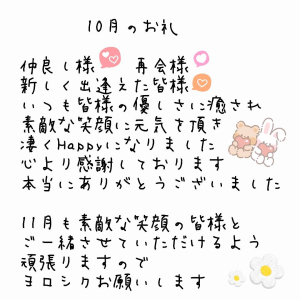 10月のお礼
仲良し様 再会様
新しく出逢えた皆様
いつも皆様の優しさに癒され
素敵な笑顔に元気を頂き
凄くHappyになりました
心より感謝しております
本当にありがとうございました
11月も素敵な笑顔の皆様と
ご一緒させていただけるよう
頑張りますので
ヨロシクお願いします